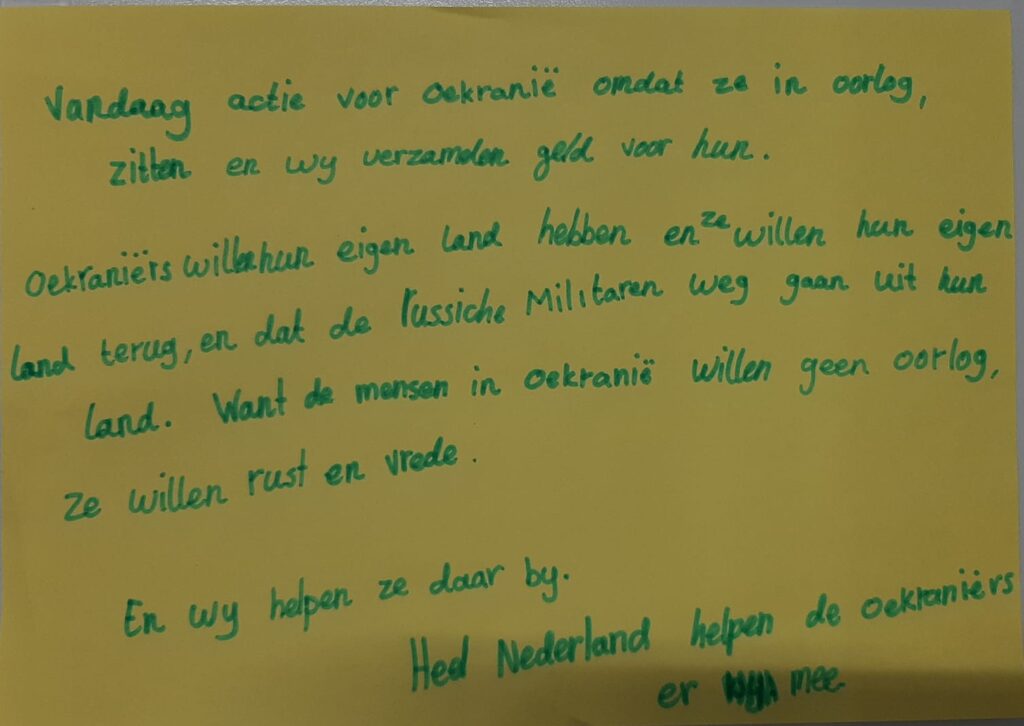 Vandaag actie voor Oekranië omdat ze in oorlog,
zitten en wy verzamelen geld voor hun.
Oekraniërs willen hun eigen land hebben en ze willen hun eigen
land terug, en dat de russiche Militaren weg gaan uit hun
land. Want de mensen in Oekranië willen geen oorlog,
ze willen rust en vrede.
En wy helpen ze daar by.
Heel Nederland helpen de Oekraniërs
er mee